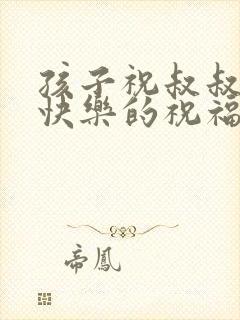 孩子祝叔叔
快樂的祝福
帝鳳